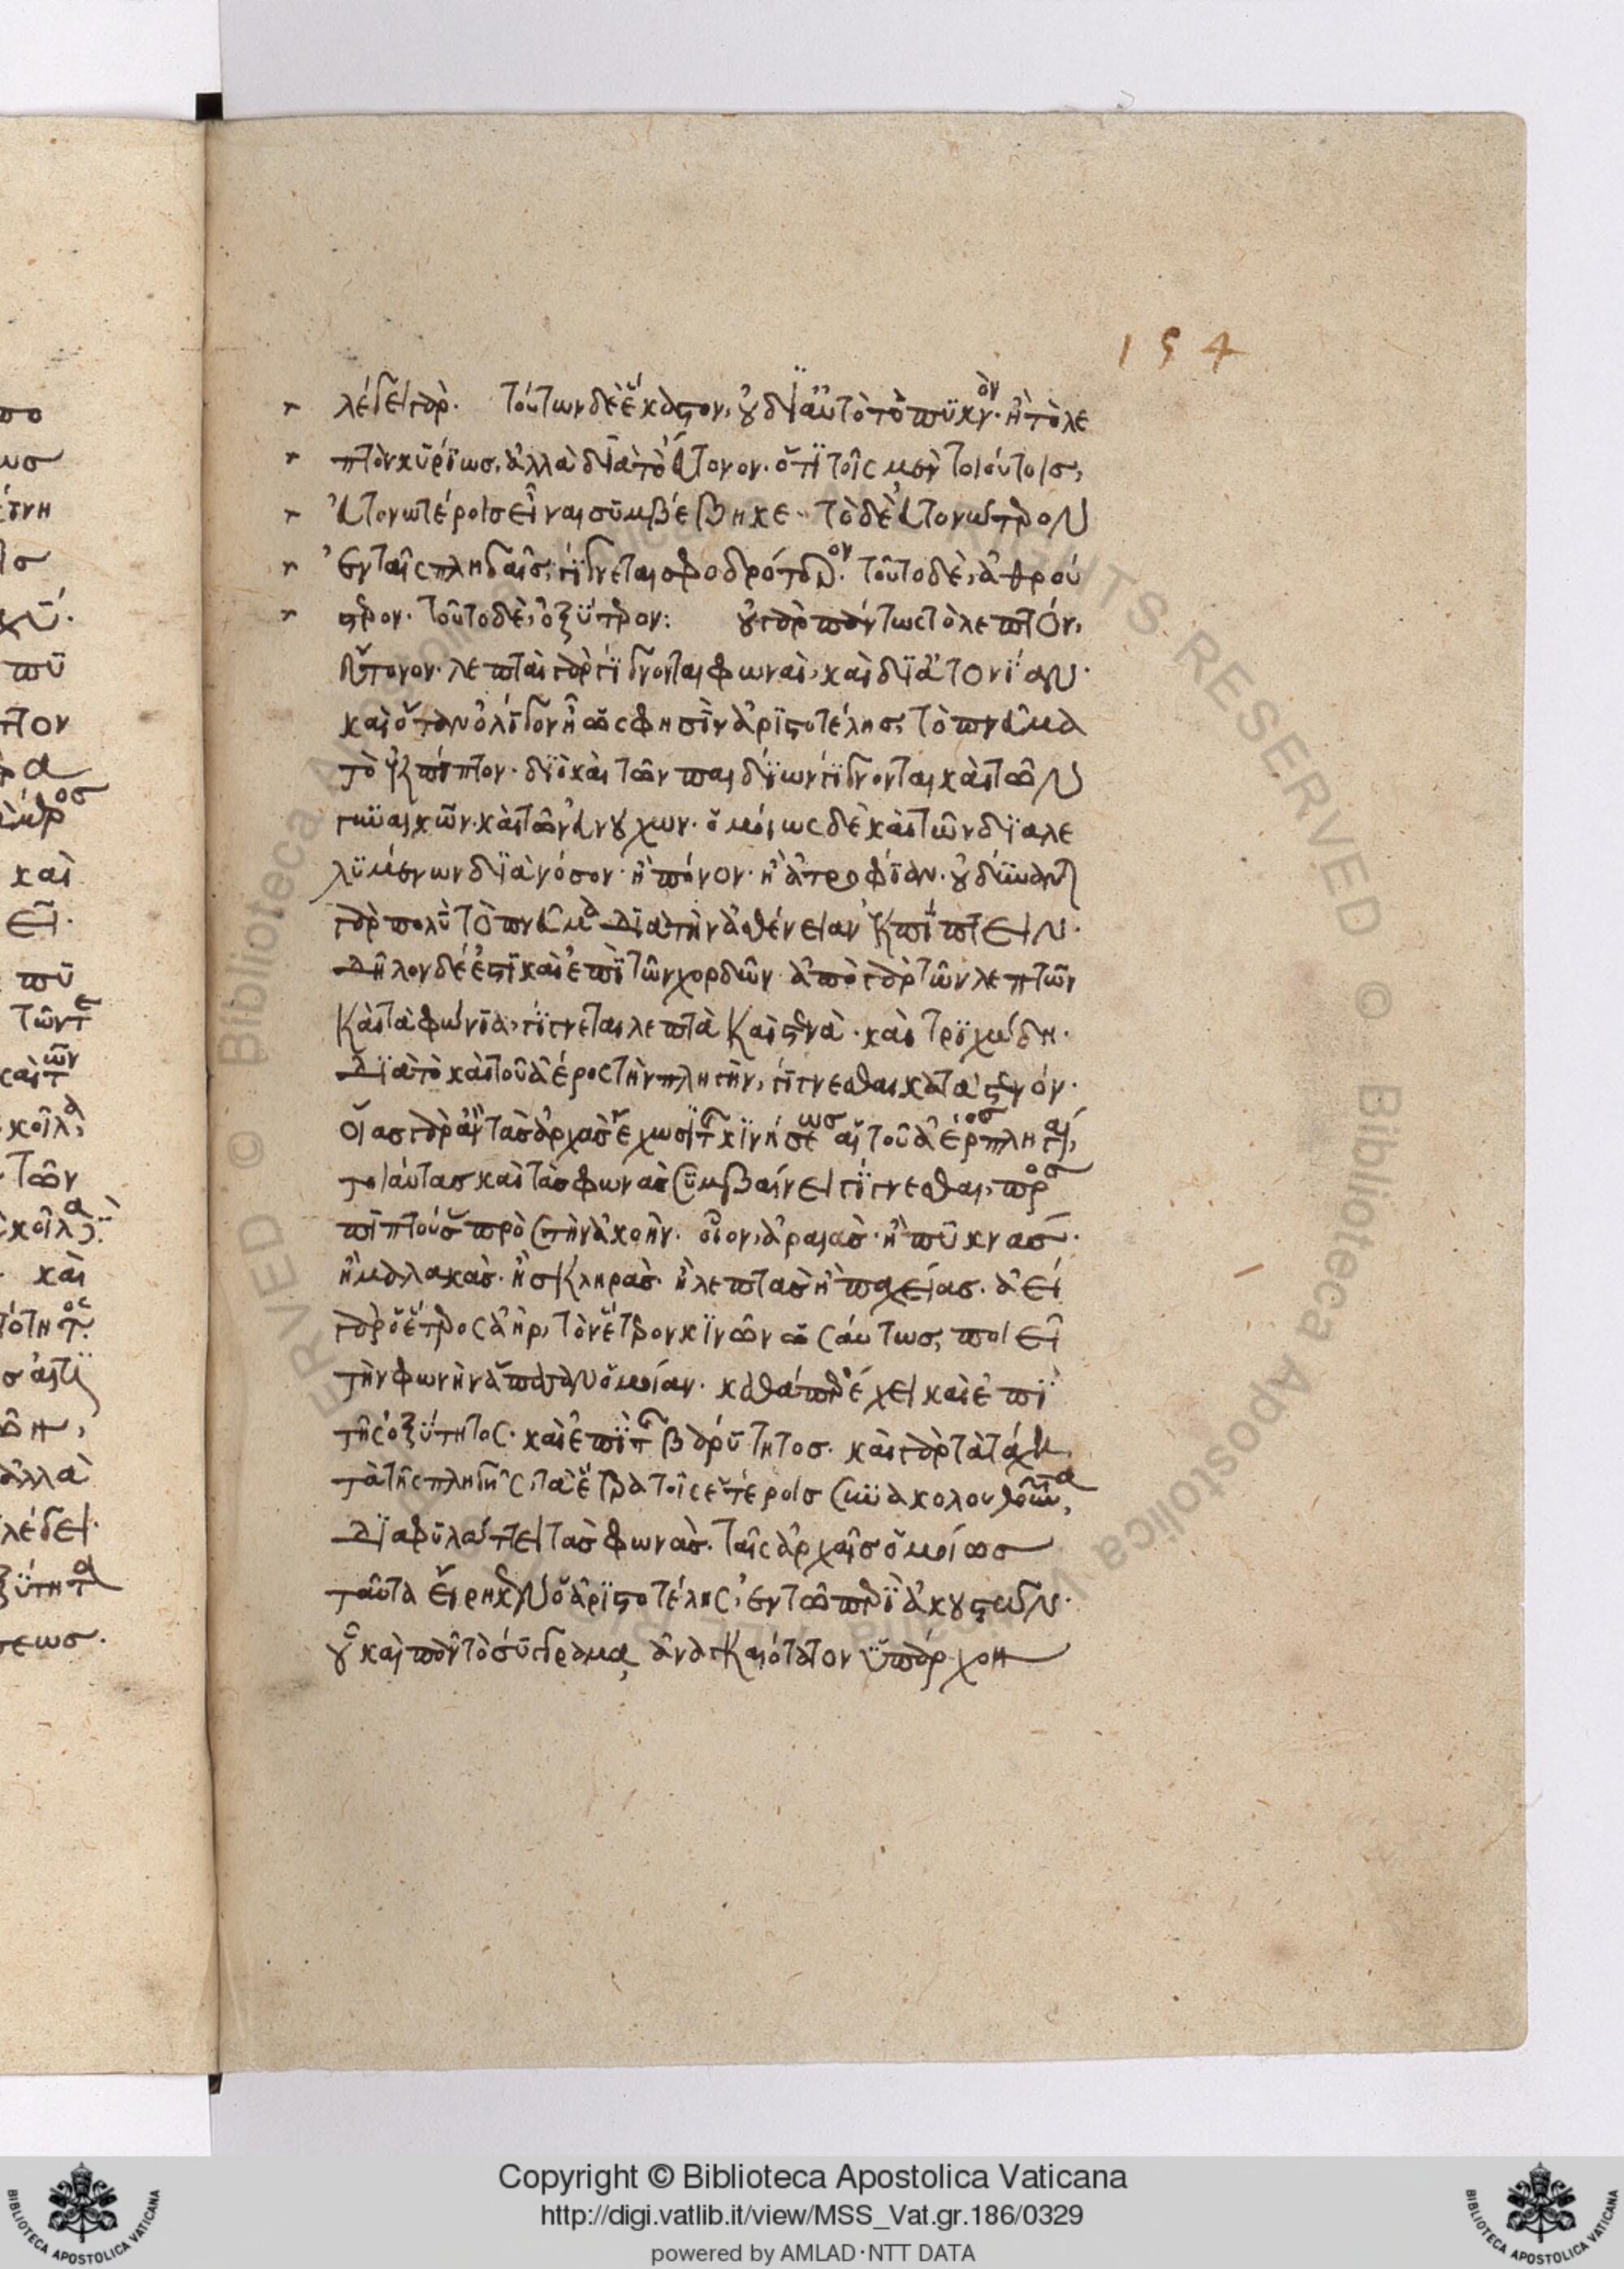 154
λέγει γάρ. τούτων δὲ ἕκαστον, οὐ δι' αὐτὸ τὸ πυκνὸν. ἢ τὸ λε
πτὸν κυρίως, ἀλλὰ διὰ τὸ εὔτονον. ὅτι τοῖς μὲν τοιούτοις,
εὐτονωτέροις εἶναι συμβέβηκε. τὸ δὲ εὐτονώτερον
ἐν ταῖς πληγαῖς, γίγνεται σφοδρότερον. τοῦτο δὲ, ἀθρού
στερον. τοῦτο δὲ, ὀξύτερον: οὐ γὰρ πάντως τὸ λεπτόν,
εὔτονον. λεπταὶ γὰρ γίγνονται φωναὶ, καὶ δι' ἀτονίαν.
καὶ ὅταν ὀλίγον ἦ ὥς φησὶν ἀριστοτέλης, τὸ πνεῦμα
τὸ ἐκπίπτον. διὸ καὶ τῶν παιδίων γίγνονται καὶ τῶν
γυναικῶν. καὶ τῶν εὐνούχων. ὁμοίως δὲ καὶ τῶν διαλε
λυμένων διὰ νόσον. ἢ πόνον. ἢ ἀτροφίαν. οὐ δύναται
γὰρ πολὺ τὸ πνεῦμα διὰ τὴν ἀσθένειαν ἐκπίπτειν.
δῆλον δέ ἐστι καὶ ἐπὶ τῶν χορδῶν. ἀπὸ γὰρ τῶν λεπτῶν
καὶ τὰ φώνια, γίγνεται λεπτὰ καὶ στενὰ. καὶ τριχώδη.
διὰ τὸ καὶ τοῦ ἀέρος τὴν πληγὴν, γίγνεσθαι κατὰ στενόν.
οἵας γὰρ ἂν τὰς ἀρχὰς ἔχωσι τῆς κινήσεως αἱ τοῦ ἀέρος πληγαί,
τοιαύτας καὶ τὰς φωνὰς συμβαίνει γίγνεσθαι, προσ
πιπτούσας πρὸς τὴν ἀκοήν. οἷον, ἀραιὰς. ἢ πυκνάς.
ἢ μαλακὰς. ἢ σκληρὰς. ἢ λεπτὰς ἢ παχείας. ἀεὶ
γὰρ ὁ ἕτερος ἀὴρ, τὸν ἕτερον κινῶν ὡσαύτως, ποιεῖ
τὴν φωνὴν ἅπασαν ὁμοίαν. καθάπερ ἔχει καὶ ἐπὶ
τῆς ὀξύτητος. καὶ ἐπὶ τῆς βαρύτητος. καὶ γὰρ τὰ τάχη
τὰ τῆς πληγῆς, τὰ ἕτερα τοῖς ἑτέροις συνακολουθοῦντα,
διαφυλάττει τὰς φωνὰς. ταῖς ἀρχαῖς ὁμοίως
ταῦτα εἴρηκεν ὁ ἀριστοτέλης, ἐν τῶ περὶ ἀκουστῶν.
οὗ καὶ πᾶν τὸ σύγγραμμα, ἀναγκαιότατον ὑπάρχον
Copyright © Biblioteca Apostolica Vaticana
http://digi.vatlib.it/view/MSS_Vat.gr.186/0329
powered by AMLAD·NTT DATA